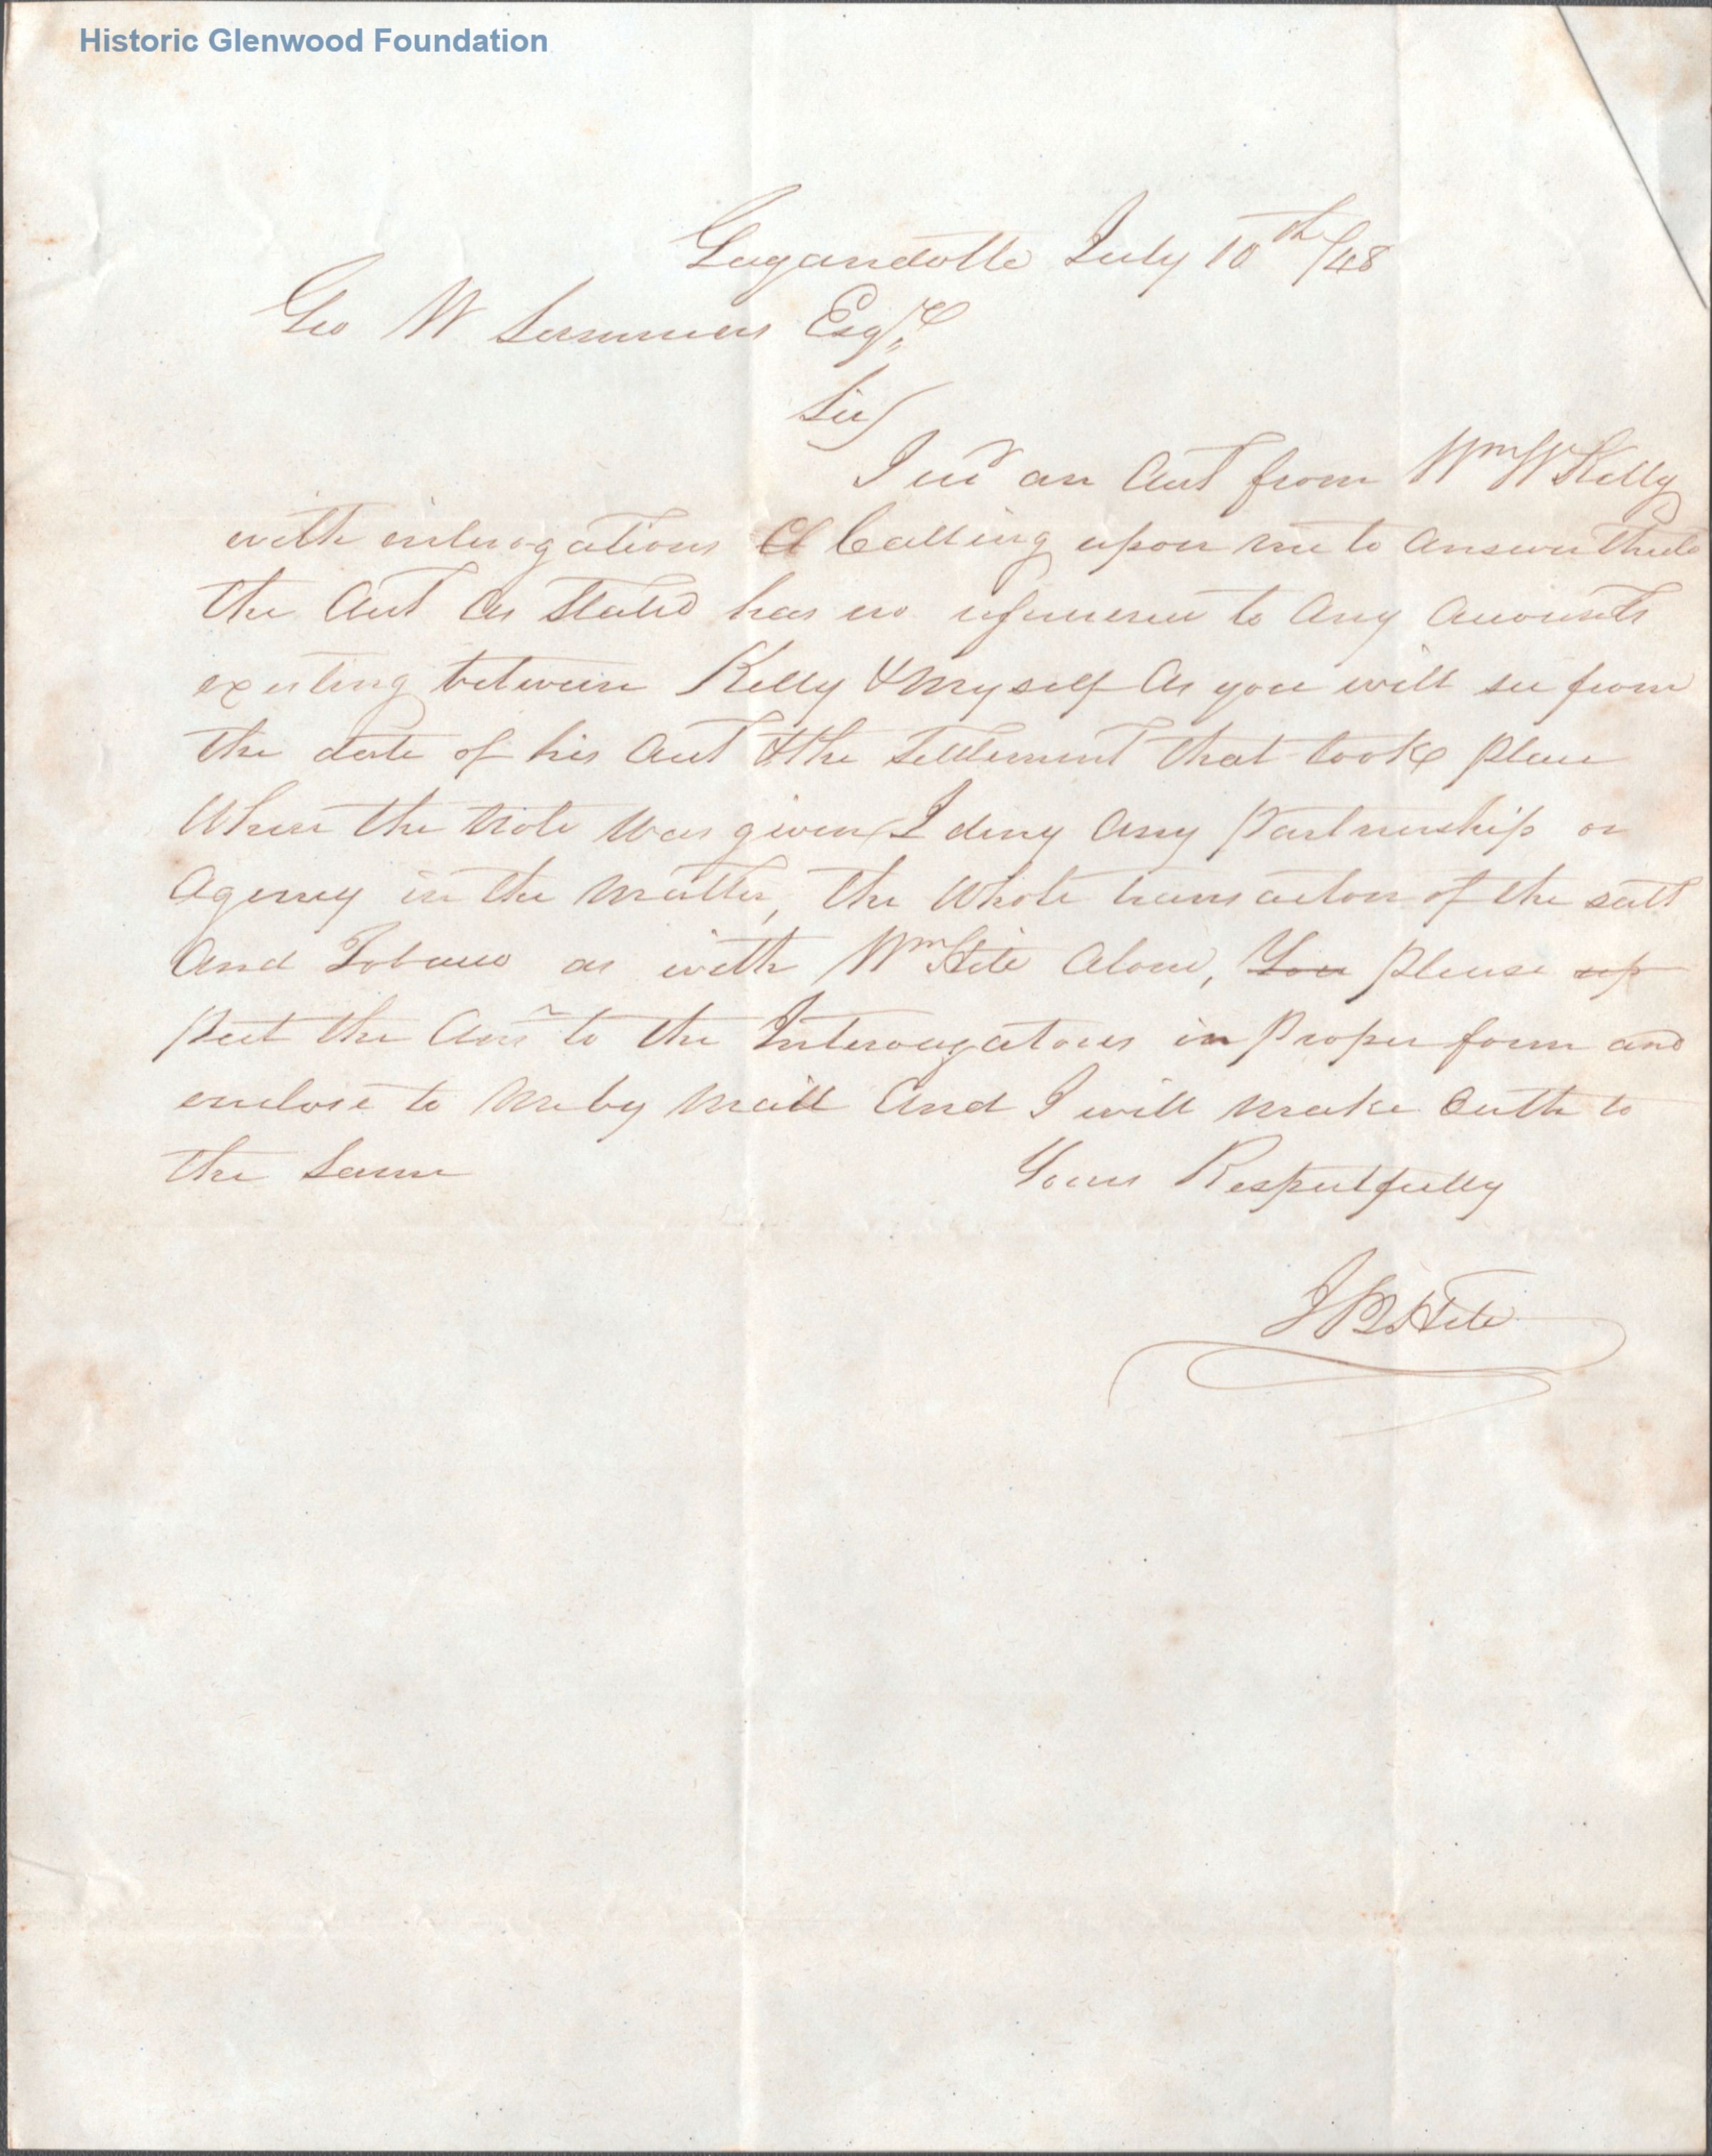 Historic Glenwood Foundation
Guyandotte July 10th/48
Geo W Summers Esqr
Sir
I recd an Acct from Wm W Kelly
with interogations Calling upon me to answer
the Acct As Stated has no referrence to Any Accounts
existing between Kelly & Myself As you will see from
the date of his Acct & the Settlement that took place
When the Note Was given I deny Any Partnership or
Agency in the Matter, the Whole transaction of the salt
And Tobacco as with Wm Hite Alone, You please up
put the Ansr to the Interougatores in Proper form and
enclose to Me by Mail And I will Make Outh to
the Same
Yours Respectfully
J B Hite